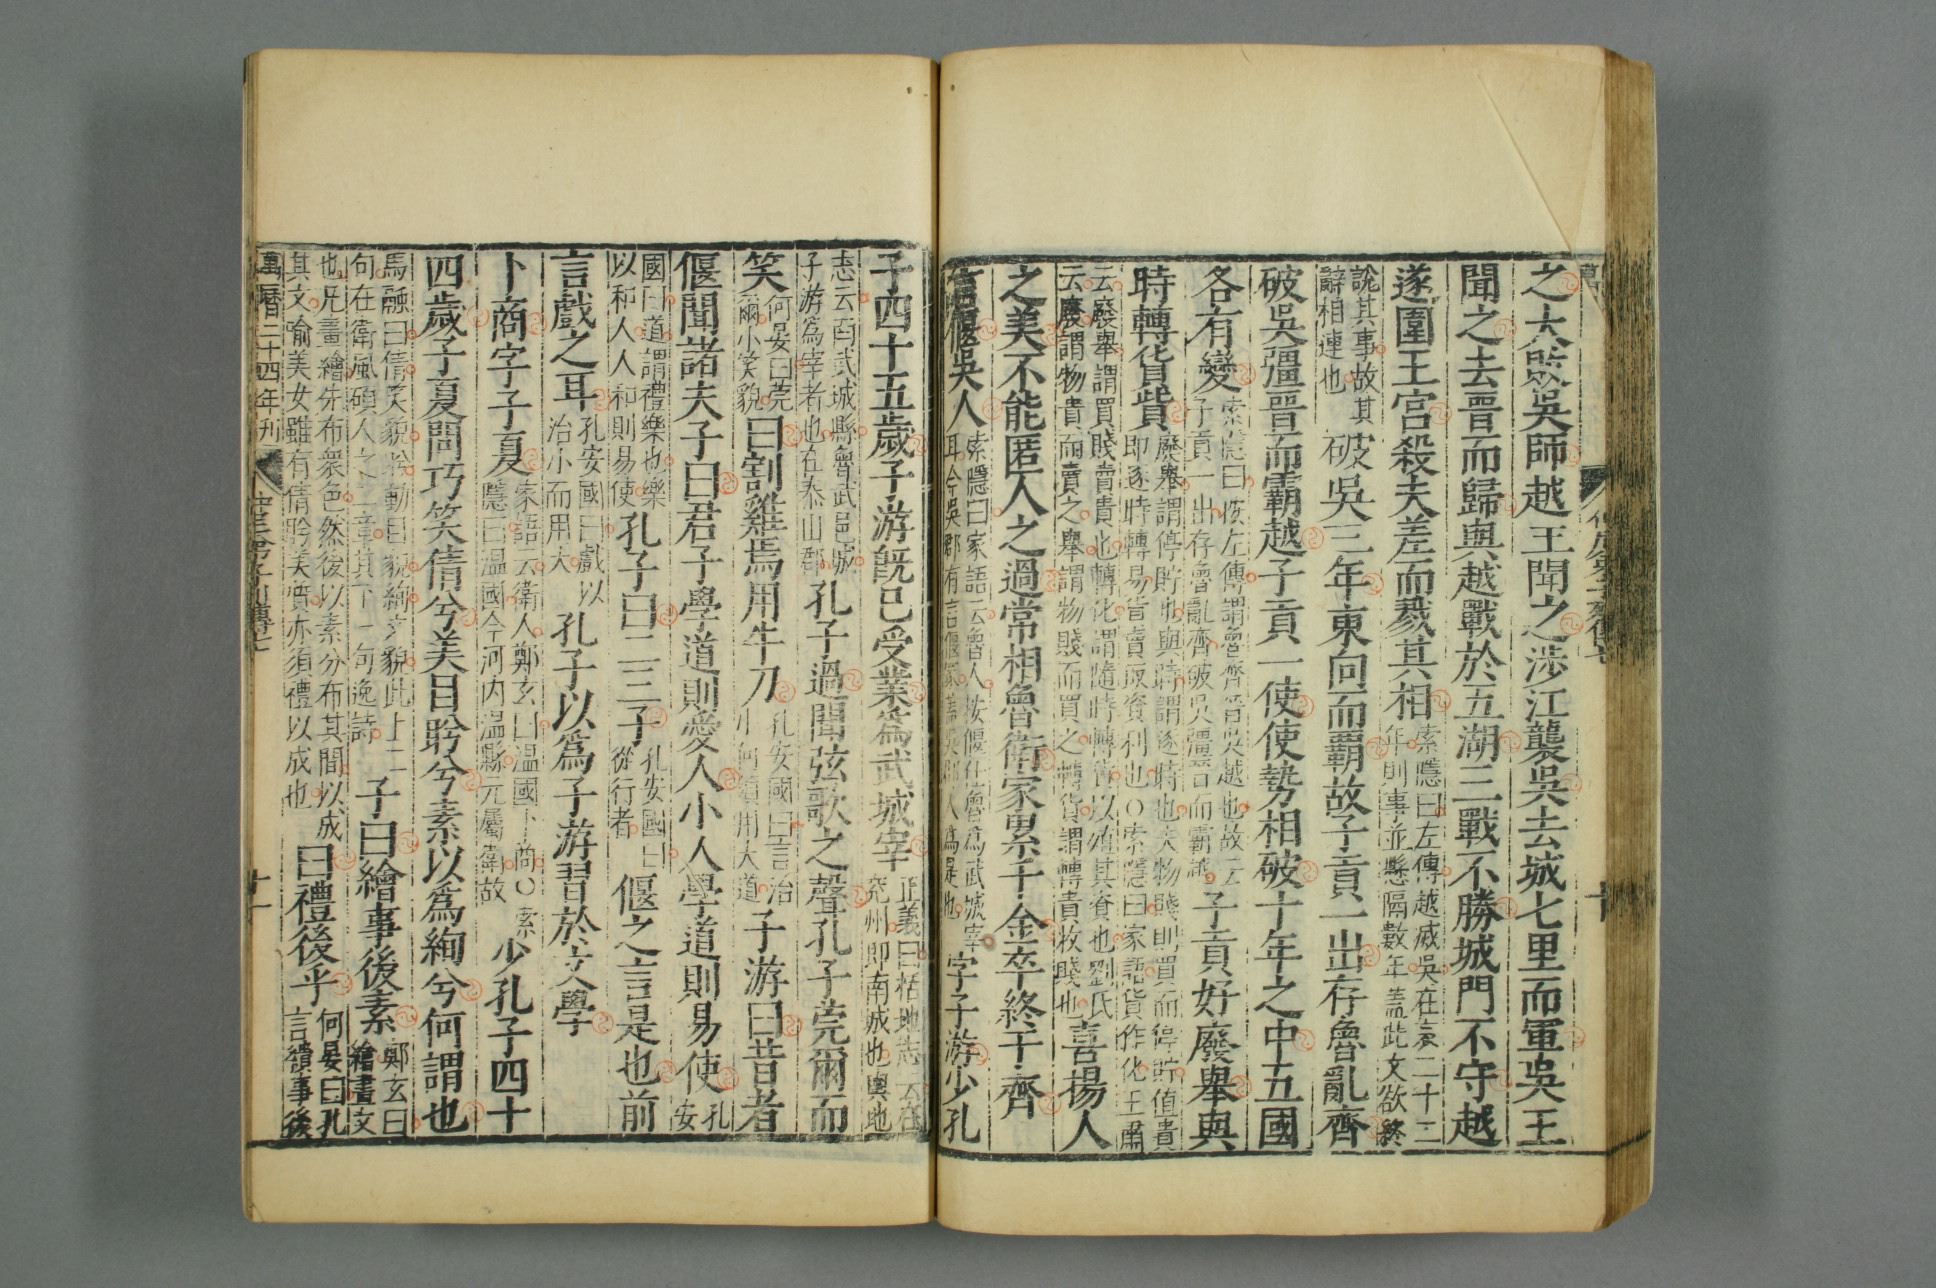 之大敗吳師越王聞之涉江襲吳去城七里而軍吳王
聞之去晉而歸與越戰於五湖三戰不勝城門不守越
遂圍王宮殺夫差而戮其相索隱曰左傳越滅吳在哀二十二年則事並懸隔數年蓋此文欲終
說其事故其辭相連也破吳三年東向而霸故子貢一出存魯亂齊
破吳彊晉而霸越子貢一使使勢相破十年之中五國
各有變索隱曰按左傳謂魯齊晉吳越也故云子貢一出存魯亂齊破吳彊晉而霸越子貢好廢舉與
時轉貨貲廢舉謂停貯也與時謂逐時也夫物賤則買而停貯值貴即逐時轉易貨賣取資利也○索隱曰家語貨作化王肅
云廢舉謂買賤賣貴也轉化謂隨時轉貨以殖其資也劉氏云廢謂物貴而賣之舉謂物賤而買之轉貨謂轉貴收賤也喜揚人
之美不能匿人之過常相魯衛家累千金卒終于齊
言偃吳人索隱曰家語云魯人按偃仕魯爲武城宰耳今吳郡有言偃冢蓋吳郡人爲是也字子游少孔
子四十五歲子游旣已受業爲武城宰正義曰括地志云在兖州卽南城也輿地
志云南武城縣魯武邑城子游爲宰者也在泰山郡孔子過聞弦歌之聲孔子莞爾而
笑何晏曰莞爾小笑貌曰割雞焉用牛刀孔安國曰言治小何須用大道子游曰昔者
偃聞諸夫子曰君子學道則愛人小人學道則易使孔安
國曰道謂禮樂也樂以和人人和則易使孔子曰二三子孔安國曰從行者偃之言是也前
言戲之耳孔安國曰戲以治小而用大孔子以爲子游習於文學
卜商字子夏家語云衛人鄭玄曰溫國卜商○索隱曰溫國今河內溫縣元屬衛故少孔子四十
四歲子夏問巧笑倩兮美目盼兮素以爲絢兮何謂也
馬融曰倩笑貌盼動目貌絢文貌此上二句在衛風碩人之二章其下一句逸詩子曰繪事後素鄭玄曰繪畫文
也凡畫繪先布衆色然後以素分布其間以成其文喻美女雖有倩盼美質亦須禮以成也曰禮後乎何晏曰孔言繢事後
萬曆二十四年刊 史記弟子列傳七 十一